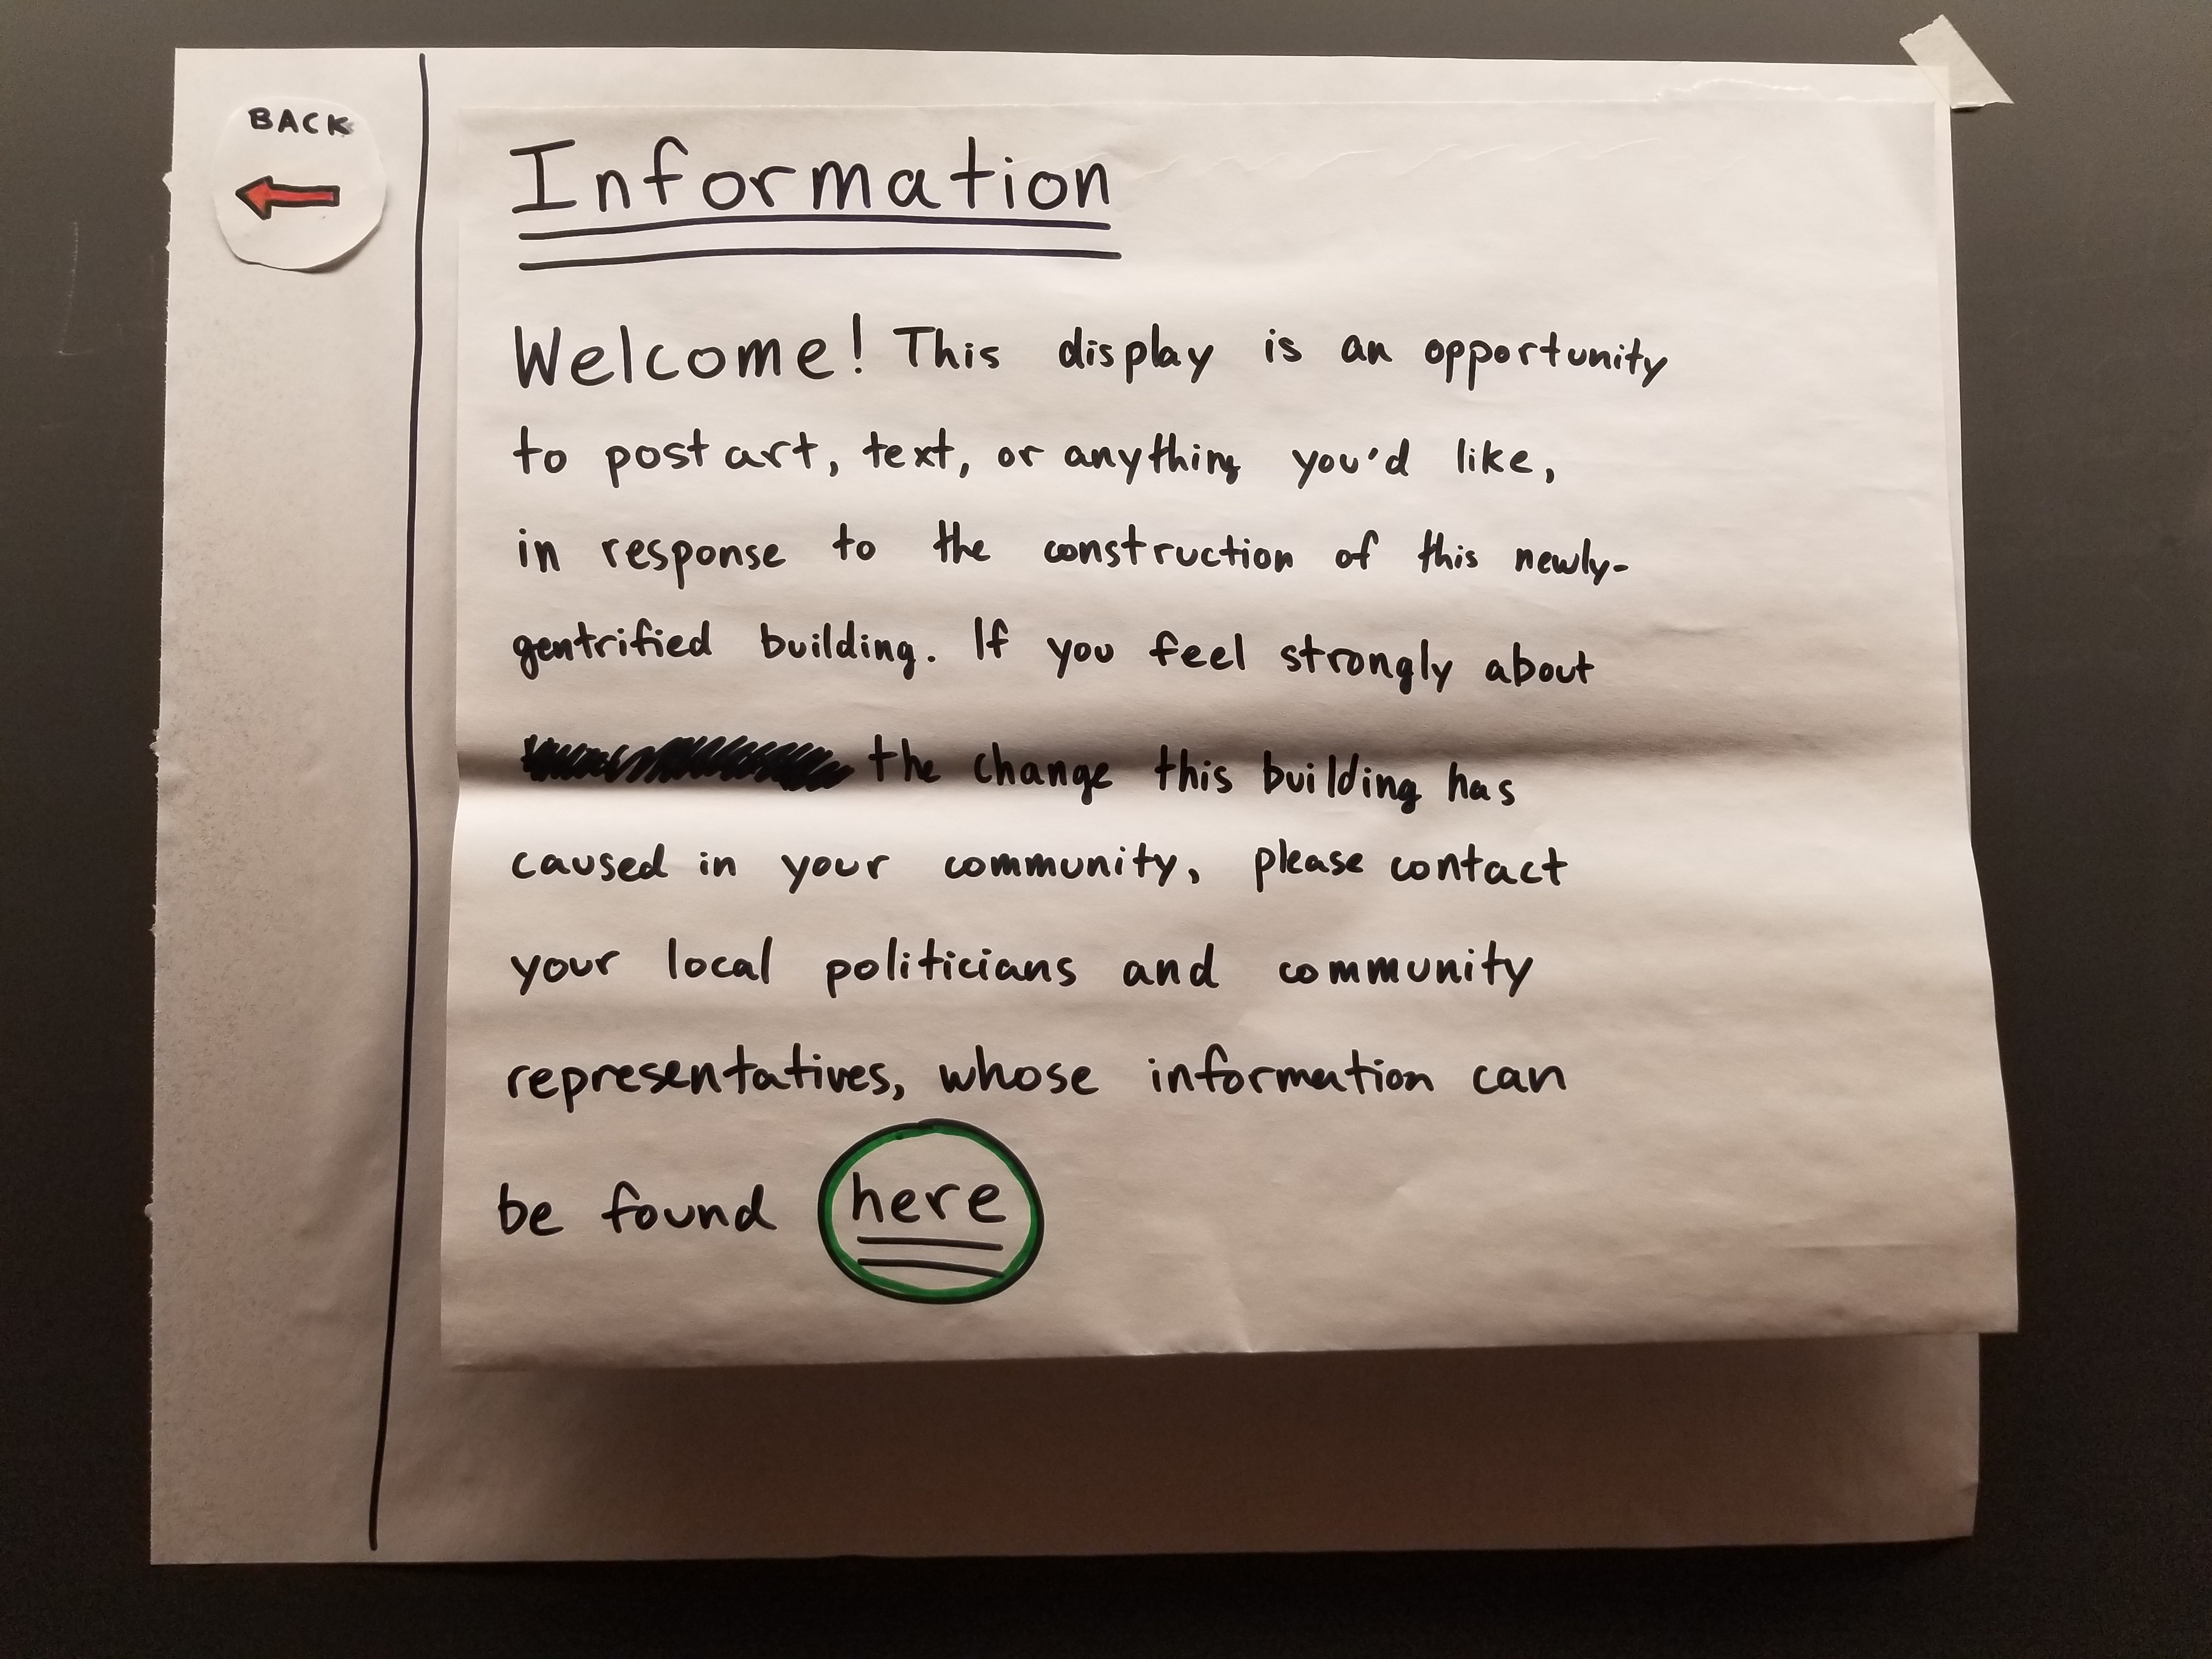 BACK
Information
Welcome! This display is an opportunity
to post art, text, or anything you'd like,
in response to the construction of this newly-
gentrified building. If you feel strongly about
the change this building has
caused in your community, please contact
your local politicians and community
representatives, whose information can
be found here